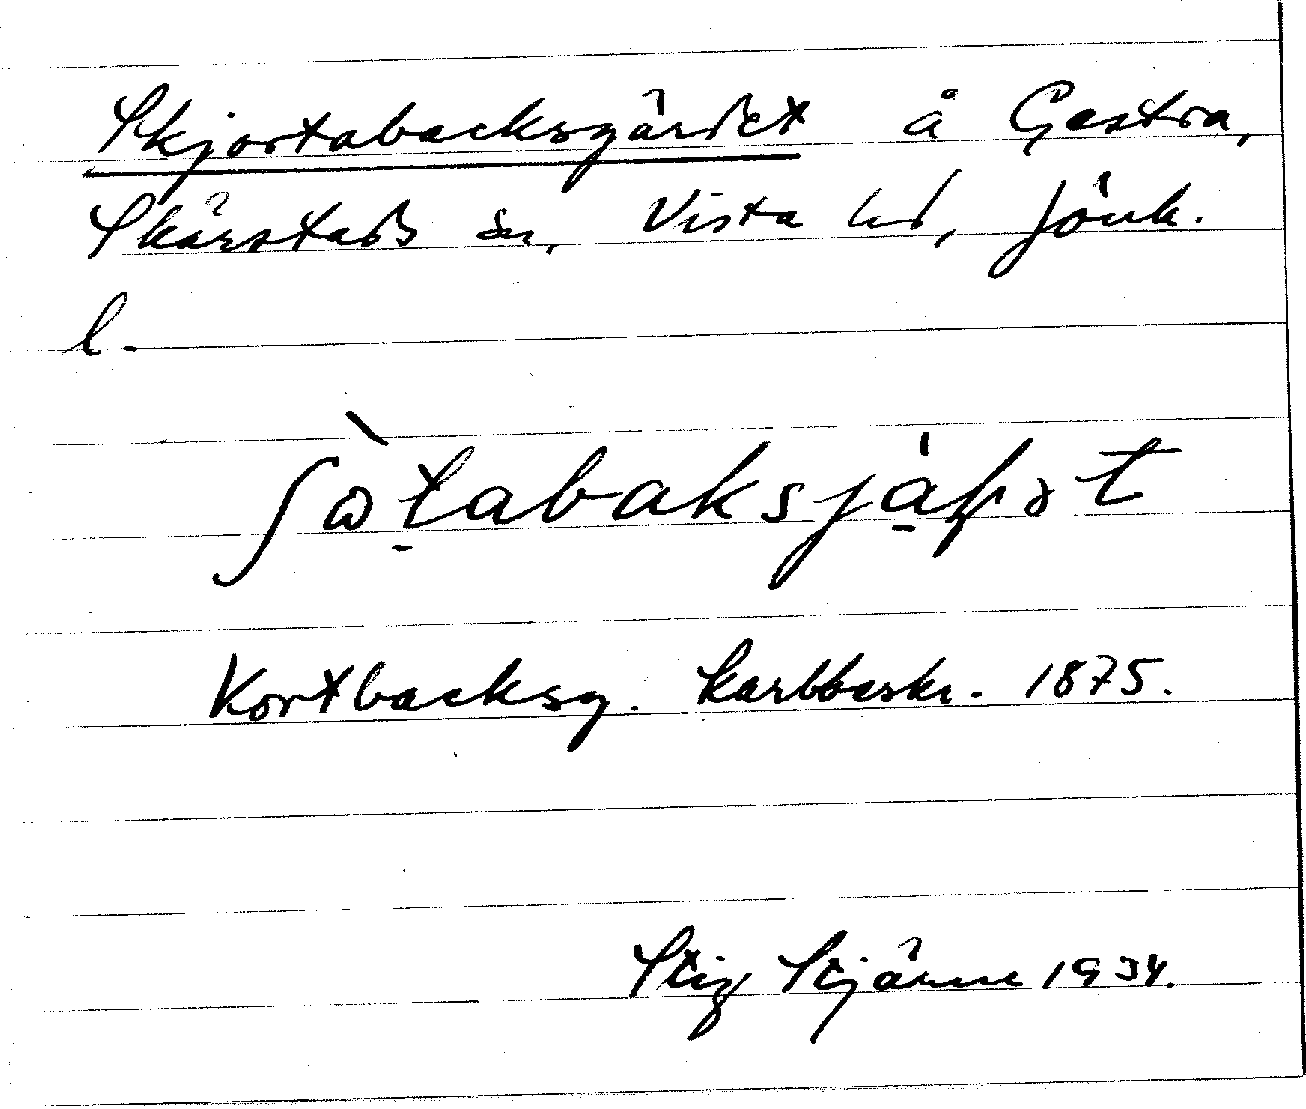 Skjortabacksgärdet å Gastra,
Skärstads sn, Vista hd, Jönk.
l.
Kortbacksg. kartbeskr. 1875.
Stig Stjärne 1934.